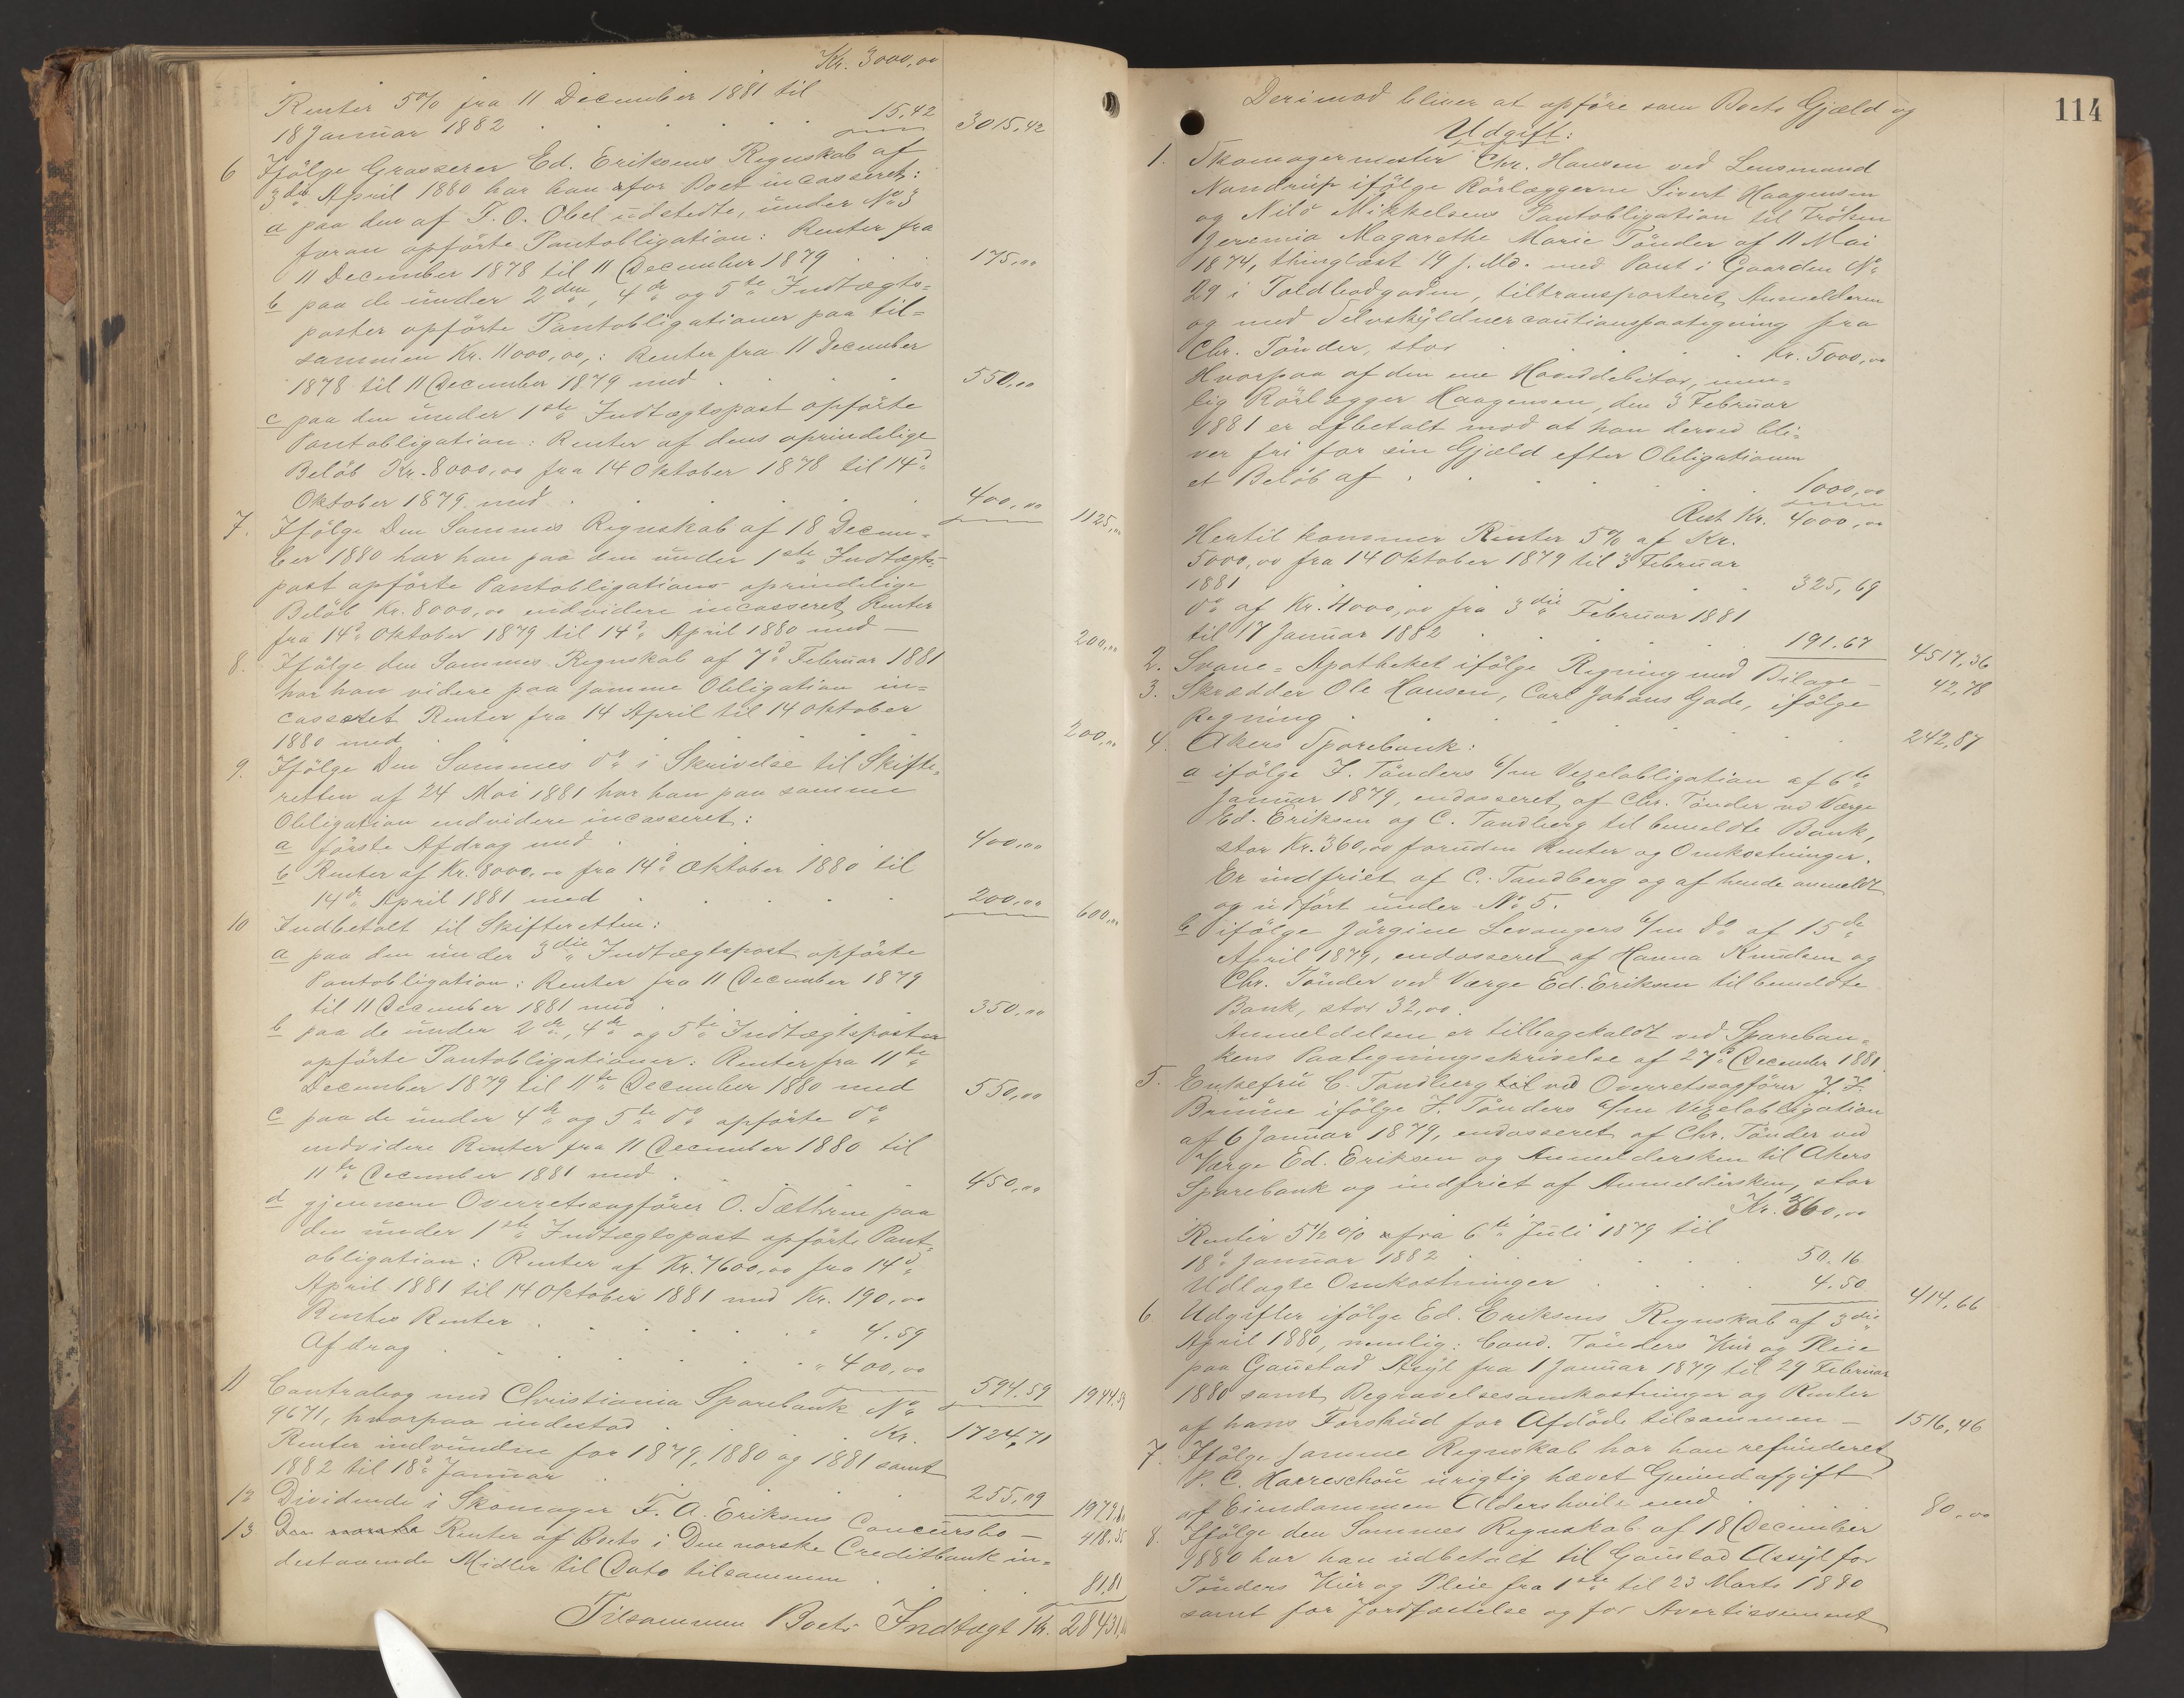 Kr. 3000,00
Renter 5% fra 11 December 1881 til
18 Januar 1882 . . . . . 15,42 3015,42
6 Ifölge Grosserer Ed. Eriksens Regnskab af
3die April 1880 har han for Boet incasseret:
a paa den af F. O. Obel udstedte, under No 3
foran opförte Pantobligation: Renter fra
11 December 1878 til 11 December 1879 . . . 175,00
b paa de under 2den, 4de og 5te Indtægts=
poster opförte Pantobligationer paa til=
sammen Kr. 11000,00,: Renter fra 11 December
1878 til 11 December 1879 med . . . . 550,00
c paa den under 1ste Indtægtspost opförte
Pantobligation: Renter af dens oprindelige
Belöb Kr. 8000,00 fra 14 Oktober 1878 til 14d
Oktober 1879 med . . . . . 400,00 1125,00
7. Ifölge Den Sammes Regnskab af 18 Decem=
ber 1880 har han paa den under 1ste Indtægts=
post opförte Pantobligations oprindelige
Belöb Kr. 8000,00 endvidere incasseret Renter
fra 14d Oktober 1879 til 14d April 1880 med — 200,00
8. Ifölge den Sammes Regnskab af 7d Februar 1881
har han videre paa samme Obligation in=
casseret Renter fra 14 April til 14 Oktober
1880 med . . . . . 200,00
9. Ifölge Den Sammes do i Skrivelse til Skifte=
retten af 24 Mai 1881 har han paa samme
Obligation endvidere incasseret:
a förste Afdrag med . . . . 400,00
b Renter af Kr. 8000,00 fra 14d Oktober 1880 til
14de April 1881 med . . . . 200,00 600,00
10 Indbetalt til Skifteretten:
a paa den under 3die Indtægtspost opförte
Pantobligation: Renter fra 11 December 1879
til 11 December 1881 med . . . . 350,00
b paa de under 2den, 4de og 5te Indtægtsposter
opförte Pantobligationer: Renter fra 11te
December 1879 til 11te December 1880 med 550,00
c paa de under 4de og 5te do opförte do
endvidere Renter fra 11 December 1880 til
11te December 1881 med . . . . 450,00
d gjennem Overretssagförer O. Sæthren paa
den under 1ste Indtægtspost opförte Pant=
obligation: Renter af Kr. 7600,00 fra 14d
April 1881 til 14 Oktober 1881 med Kr. 190,00
Rentes Renter . . . . . " 4.59
Afdrag . . . . . " 400,00 594.59 1944,59
11 Contrabog med Christiania Sparebank No
9671, hvorpaa indestod . . . . Kr. 1724,71
Renter indvundne for 1879, 1880 og 1881 samt
1882 til 18d Januar . . . . 255,09 1979,80
12 Dividende i Skomager F. A. Eriksens Concursbo — 418,35
13 Den norske Renter af Boets i Den norske Creditbank in=
destaaende Midler til Dato tilsammen . . . 81,81
Tilsammen Boets Indtægt Kr. 28431,
114
Derimod bliver at opföre som Boets Gjæld og
Udgift:
1. Skomagermester Chr. Hansen ved Lensmand
Nandrup ifölge Rörlæggerne Sivert Haagensen
og Nils Mikkelsens Pantobligation til Fröken
Jeremia Magarethe Marie Tönder af 11 Mai
1874, thinglæst 19 s. Md. med Pant i Gaarden No
29 i Toldbodgaden, tiltransporteret Anmelderen
og med Selvskyldnercautionspaategning fra
Chr. Tönder, stor . . . . . Kr. 5000,00
Hvorpaa af den ene Hoveddebitor, nem=
lig Rörlægger Haagensen, den 3 Februar
1881 er afbetalt mod at han derved bli=
ver fri for sin Gjæld efter Obligationen
et Belöb af . . . . . 1000,00
Rest Kr. 4000,00
Hertil kommer Renter 5% af Kr.
5000,00 fra 14 Oktober 1879 til 3 Februar
1881 . . . . . 325,69
do af Kr. 4000,00 fra 3die Februar 1881
til 17 Januar 1882 . . . . 191.67 4517,36
2. Svane=Apotheket ifölge Regning med Bilage — 42,78
3. Skrædder Ole Hansen, Carl Johans Gade, ifölge
Regning . . . . . 242,87
4. Akers Sparebank:
a ifölge J. Tönders 6/m Vexelobligation af 6te
Januar 1879, endosseret af Chr. Tönder ved Værge
Ed. Eriksen og C. Tandberg til bemeldte Bank,
stor Kr. 360,00 foruden Renter og Omkostninger.
Er indfriet af C. Tandberg og af hende anmeldt
og udfört under No 5.
b ifölge Jörgine Levangers 6/m do af 15de
April 1879, endosseret af Hanna Knudsen og
Chr. Tönder ved Værge Ed. Eriksen til bemeldte
Bank, stor 32,00.
Anmeldelsen er tilbagekaldt ved Spareban=
kens Paategningsskrivelse af 27d December 1881.
5. Enkefru C. Tandberg til ved Overretssagförer J. F.
Bruune ifölge J. Tönders 6/m Vexelobligation
af 6 Januar 1879, endosseret af Chr. Tönder ved
Værge Ed. Eriksen og Anmeldersken til Akers
Sparebank og indfriet af Anmeldersken, stor
Kr. 360,00
Renter 5 1/2 % fra 6te Juli 1879 til
18d Januar 1882 . . . . 50.16
Udlagte Omkostninger . . . . 4.50 414,66
6 Udgifter ifölge Ed. Eriksens Regnskab af 3die
April 1880, nemlig: Cand. Tönders Kur og Pleie
paa Gaustad Asyl fra 1 Januar 1879 til 29 Februar
1880 samt Begravelsesomkostninger og Renter
af hans Forskud for Afdöde tilsammen — 1516,46
7. Ifölge samme Regnskab har han refunderet
P. C. Harreschou urigtig hævet Grundafgift
af Eiendommen Aldershvile med . . . 80,00
8. Ifölge den Sammes Regnskab af 18 December
1880 har han udbetalt til Gaustad Assyl for
Tönders Kur og Pleie fra 1ste til 23 Marts 1880
samt for Jordfæstelse og for Avertissement